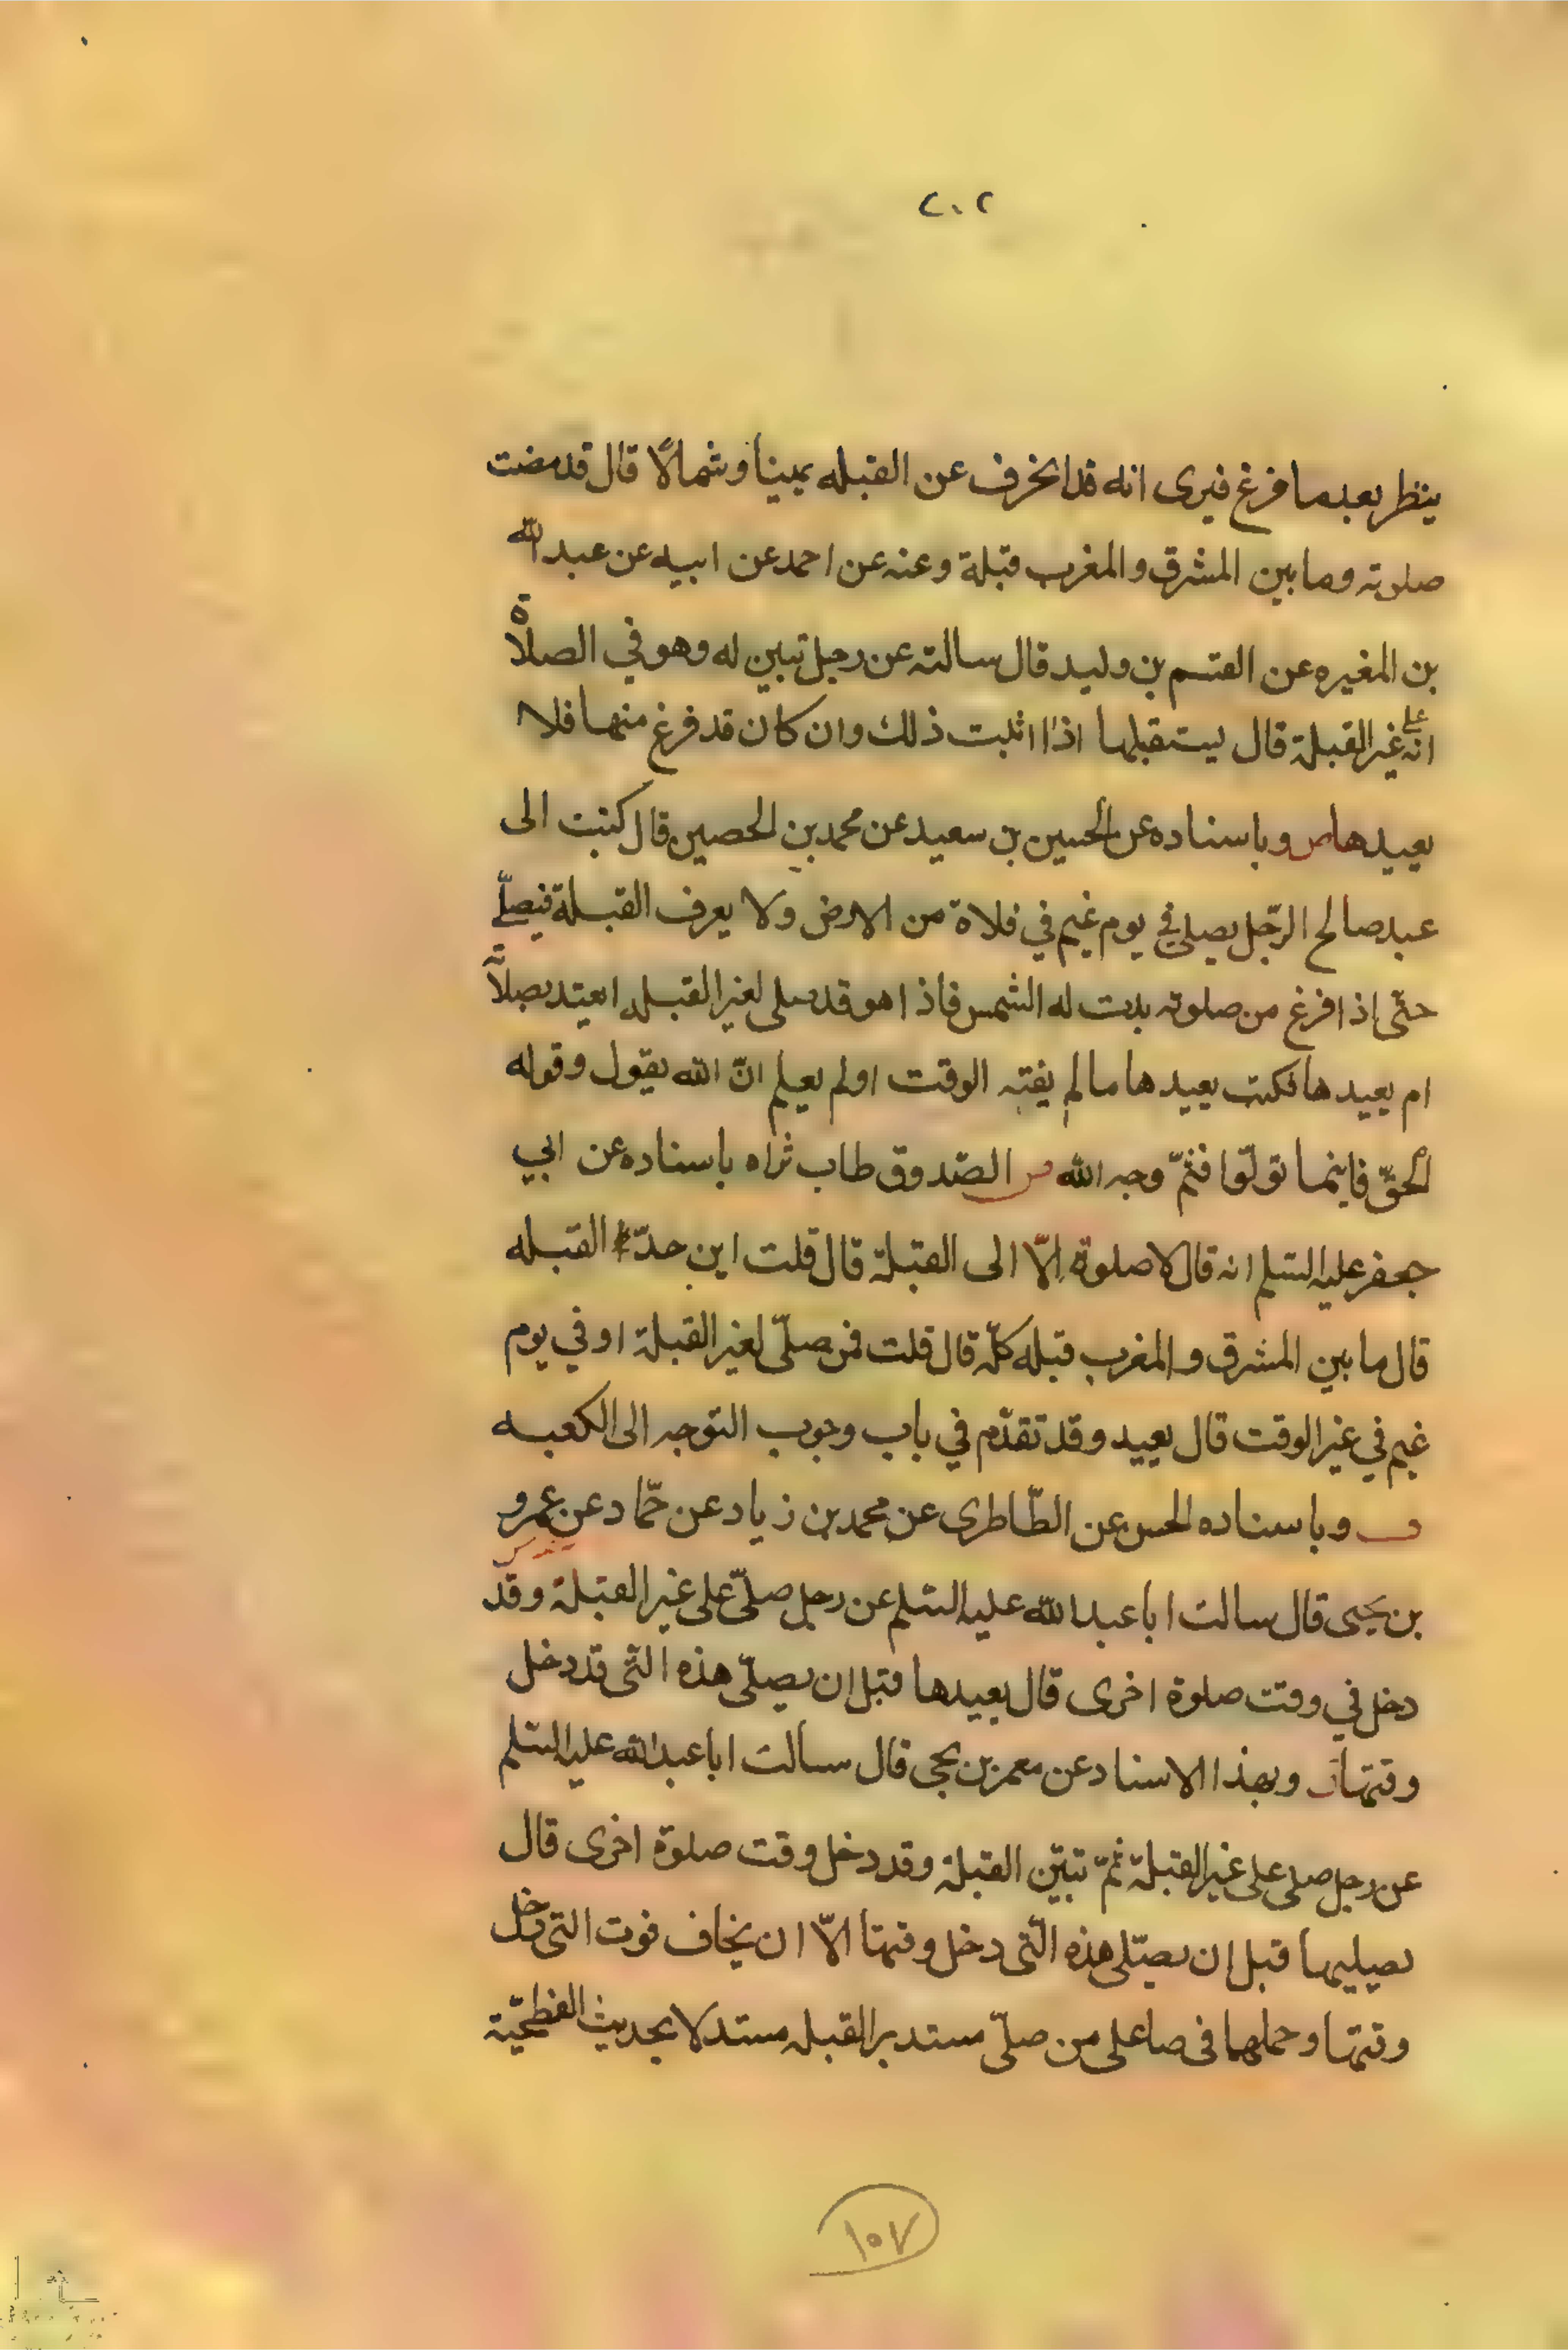 ٢٠٢
ينظر بعد ما فرغ فيرى انه قد انحرف عن القبله يمينا وشمالًا قال قد مضت
صلوته وما بين المشرق والمغرب قبلة وعنه عن احمد عن ابيه عن عبد الله
بن المغيره عن القسم بن وليد قال سالته عن رجل تبين له وهو في الصلاة
انه على غير القبلة قال يستقبلها اذا اثبت ذلك وان كان قد فرغ منها فلا
يعيدها ص وباسناده عن الحسين بن سعيد عن محمد بن الحصين قال كتبت الى
عبد صالح الرّجل يصلي في يوم غيم في فلاة من الارض ولا يعرف القبلة فيصلّي
حتّى اذا فرغ من صلوته بدت له الشمس فاذا هو قد صلى لغير القبله ايعتد بصلاته
ام يعيدها فكتب يعيدها ما لم يفته الوقت اولم يعلم انّ الله يقول وقوله
الحقّ فاينما تولّوا فثمّ وجه الله الصّدوق طاب ثراه باسناده عن ابي
جعفر عليه السّلم انه قال لا صلوة الّا الى القبلة قال قلت اين حدّ القبله
قال ما بين المشرق والمغرب قبله كلّه قال قلت فمن صلّى لغير القبلة او في يوم
غيم في غير الوقت قال يعيد وقد تقدّم في باب وجوب التوجه الى الكعبه
وباسناده الحسن عن الطّاطرى عن محمد بن زياد عن حمّاد عن عمرو
بن يحيى قال سالت ابا عبد الله عليه السّلم عن رجل صلّى على غير القبلة وقد
دخل في وقت صلوة اخرى قال يعيدها قبل ان يصلّى هذه التّى قد دخل
وقتها وبهذا الاسناد عن معمر بن يحيى قال سالت ابا عبد الله عليه السّلم
عن رجل صلى على غير القبلة ثمّ تبيّن القبلة وقد دخل وقت صلوة اخرى قال
يصليها قبل ان يصلّى هذه الّتى دخل وقتها الّا ان يخاف فوت التى دخل
وقتها وحملهما فى صا على من صلّى مستدبر القبله مستدلا بحديث الفطحيّة
١٠٧